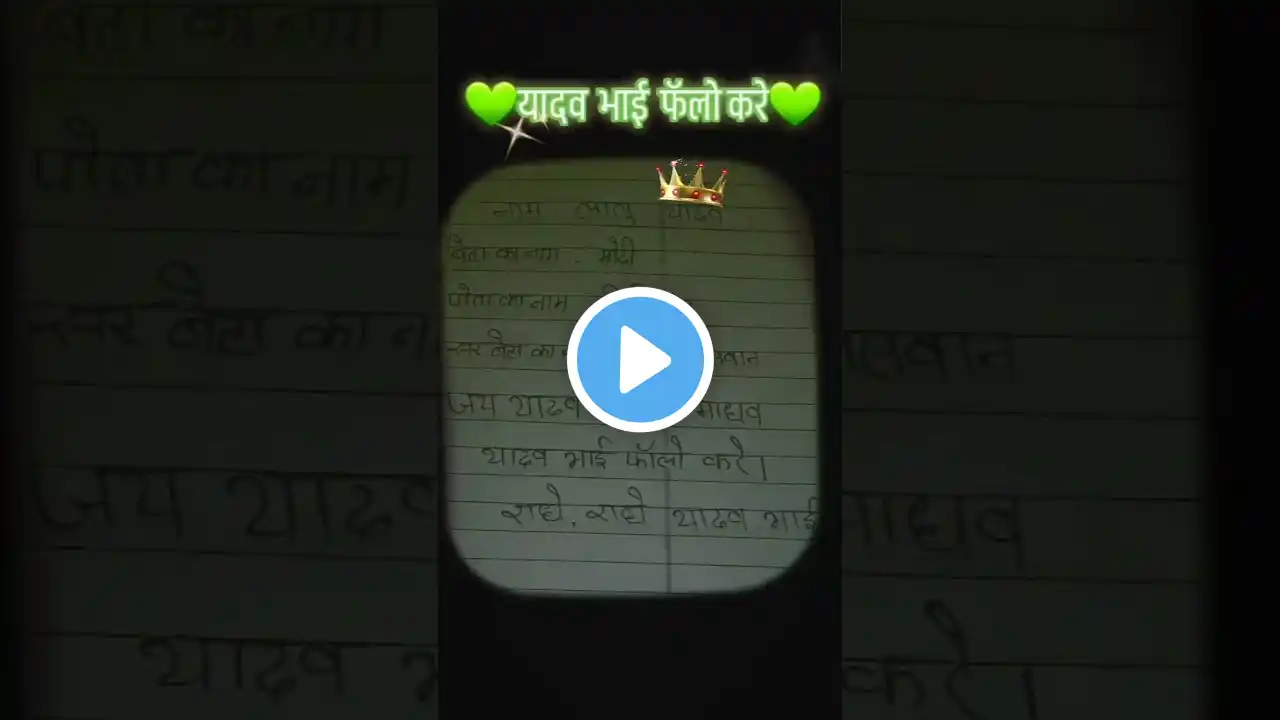 💚यादव भाई फॅलो करे💚
नाम लालु यादव
बेटा का नाम . मोदी
पोता का नाम
का
जय यादव माधव
यादव भाई फॉलो करे।
राधे, राधे यादव भाई